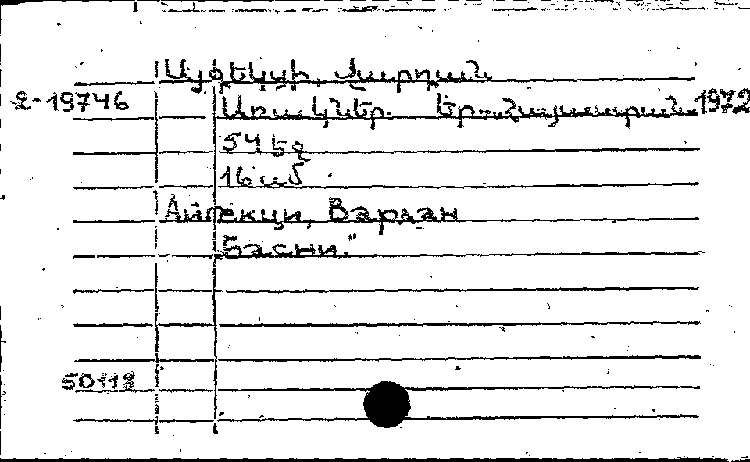 Այգեկցի, Վարդան
2-19746 Առակներ. Եր., Հայաստան 1972
54 եջ
16 սմ
Айгекци, Вардан
Басни."
50118